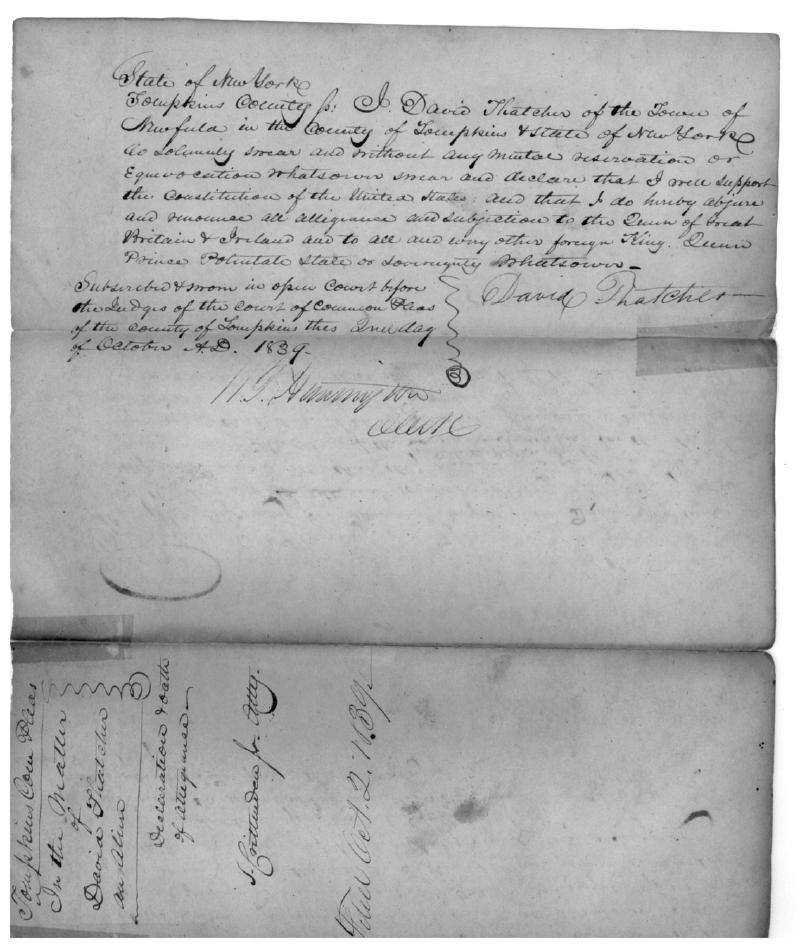 State of New York
Tompkins County ss: I, David Thatcher of the Town of
Newfield in the County of Tompkins & State of New York
do solemnly swear and without any mental reservation or
Equivocation whatsoever swear and declare that I will support
the Constitution of the United States: and that I do hereby abjure
and renounce all allegiance and subjection to the Queen of Great
Britain & Ireland and to all and every other foreign King. Queen
Prince Potentate State or Sovereignty whatsoever
Subscribed & sworn in open Court before
the Judges of the Court of Common Pleas
of the County of Tompkins this 2nd day
of October A.D. 1839.
David Thatcher
Clerk
Tompkins Com Pleas
In the Matter
of
David Thatcher
an Alien
Declaration & oath
of Allegiance
S. Crittenden Jr. Atty.
Filed Oct. 2. 1839